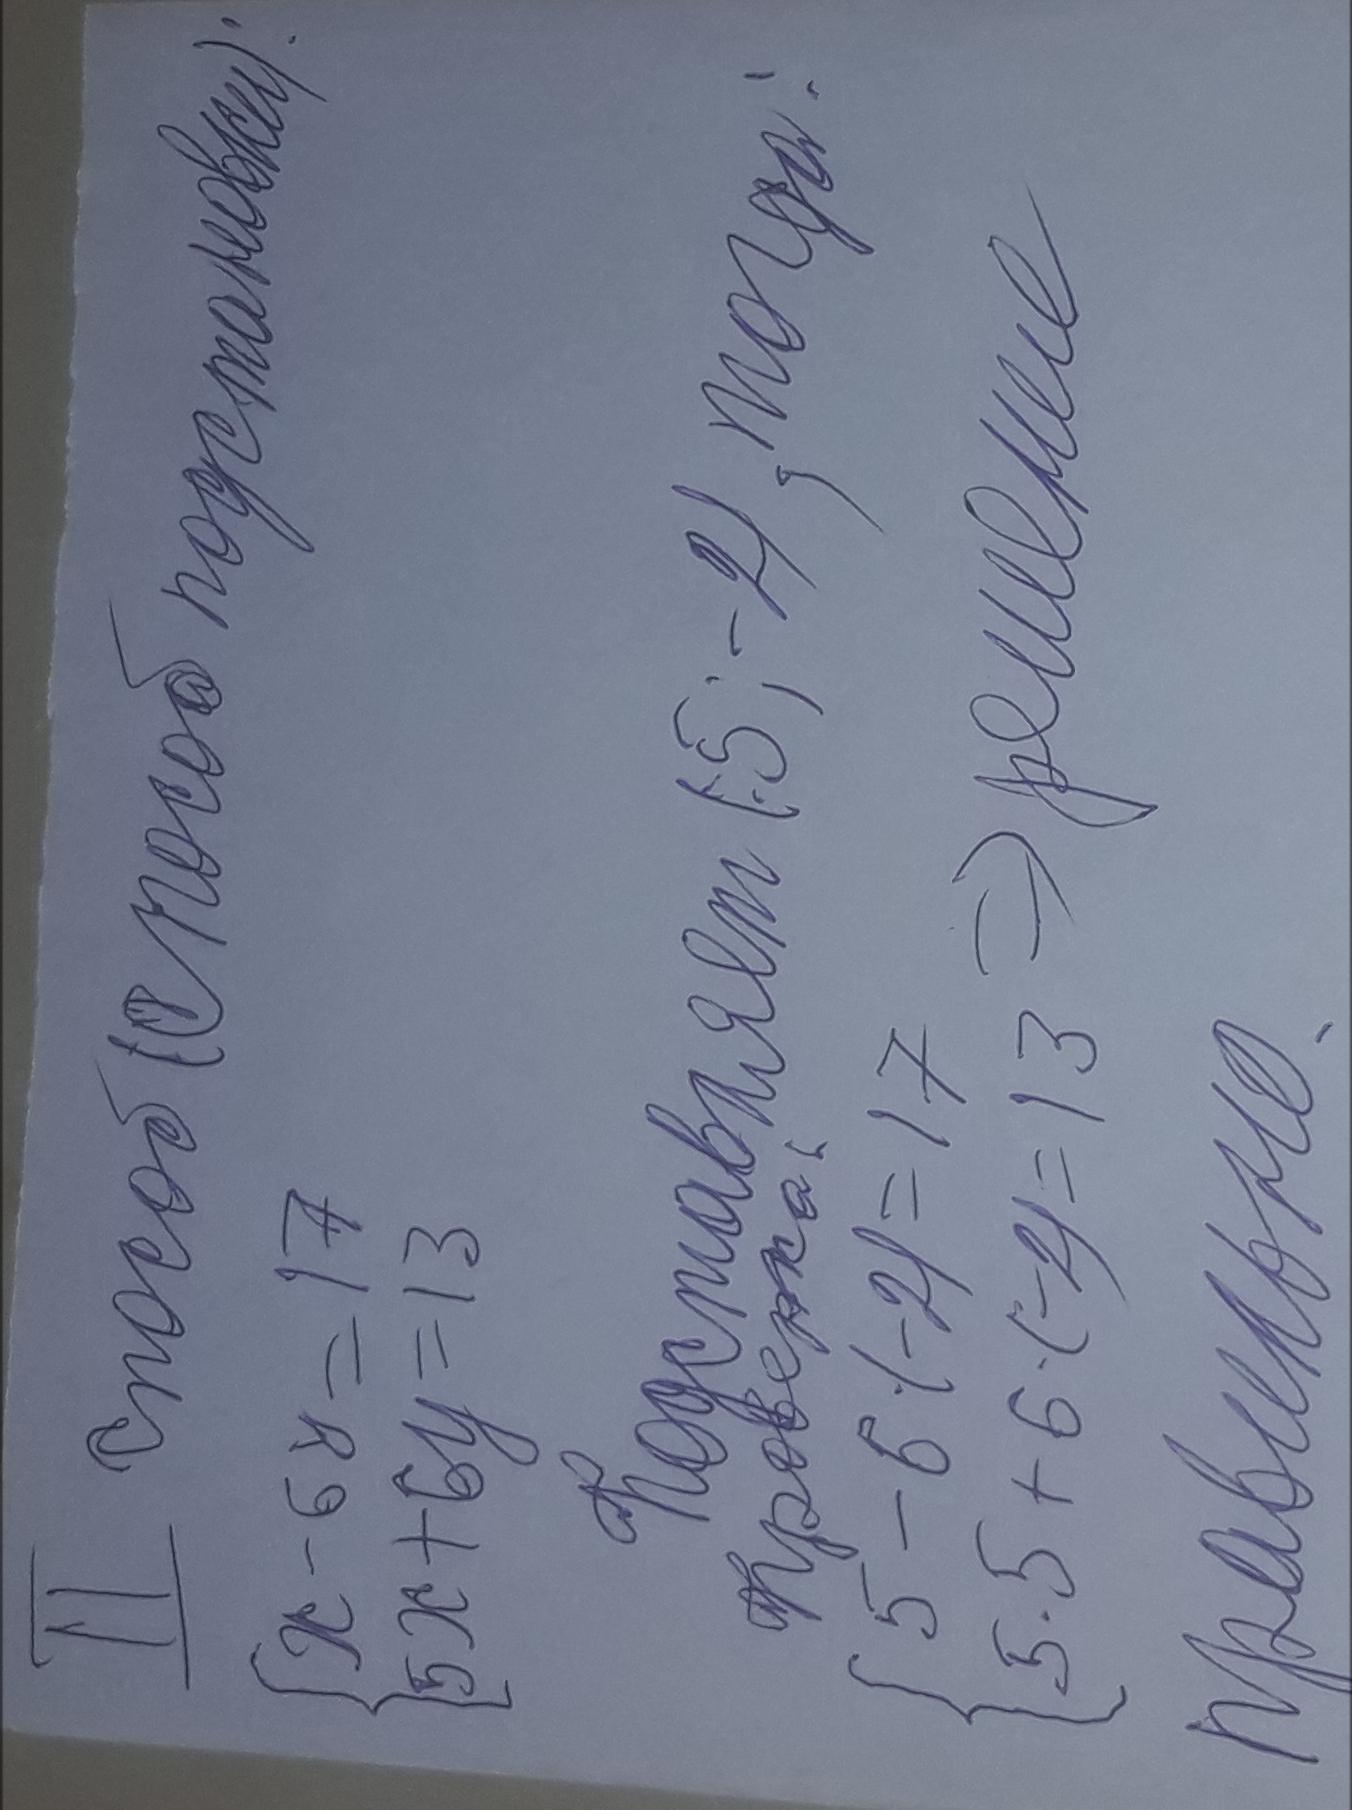 II способ (способ подстановки):
{x - 6y = 17
{5x + 6y = 13
Подставляем (5; -2), тогда:
Проверка:
{5 - 6·(-2) = 17
{5·5 + 6·(-2) = 13 => решение
правильное.